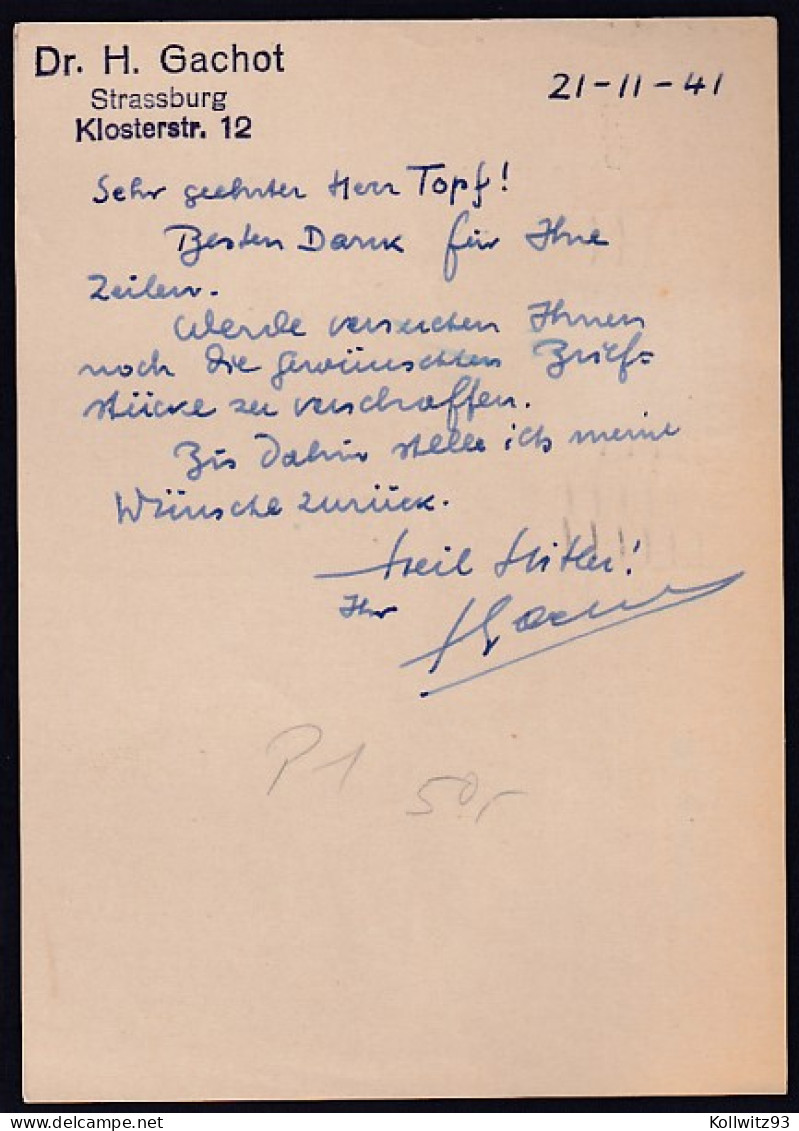 Dr. H. Gachot
Strassburg
Klosterstr. 12
21-11-41
Sehr geehrter Herr Topf!
Besten Dank für Ihre
Zeilen.
Werde versuchen Ihnen
noch die gewünschten Brief=
stücke zu verschaffen.
Bis dahin stelle ich meine
Wünsche zurück.
Heil Hitler!
Ihr
HGachot
P1
50,-
Kollwitz93